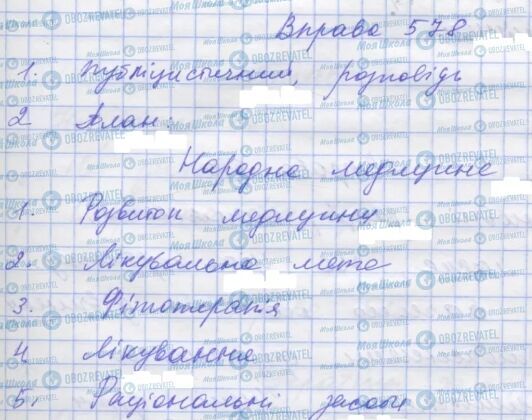 Вправа 578
1. Публіцистичний, розповідь
2 План:
Народна медицина
1. Розвиток медицини
2. Лікувальна мета
3. Фітотерапія
4 Лікування
5. Раціональні засоби